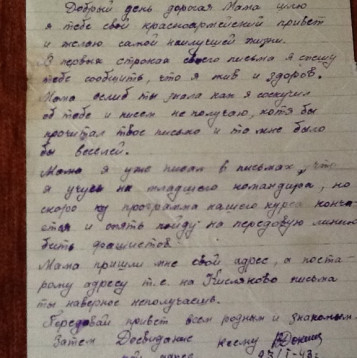 Добрый день дорогая Мама шлю
я тебе свой красноармейский привет
и желаю самой наилучшей жизни.
В первых строках своего письма я спешу
тебе сообщить, что я жив и здоров.
Мама еслиб ты знала как я соскучил
об тебе и писем не получаю, хотя бы
прочитал твое письмо и то мне было
бы веселей.
Мама я уже писал в письмах, что
я учусь на младшего командира, но
скоро программа нашего курса конча
ется и опять пойду на передовую линию
бить фашистов.
Мама пришли мне свой адрес, а поста
рому адресу т.е. на Кисляково письма
ты наверное неполучаешь.
Передавай привет всем родным и знакомым.
Затем Досвидание целую
43г.